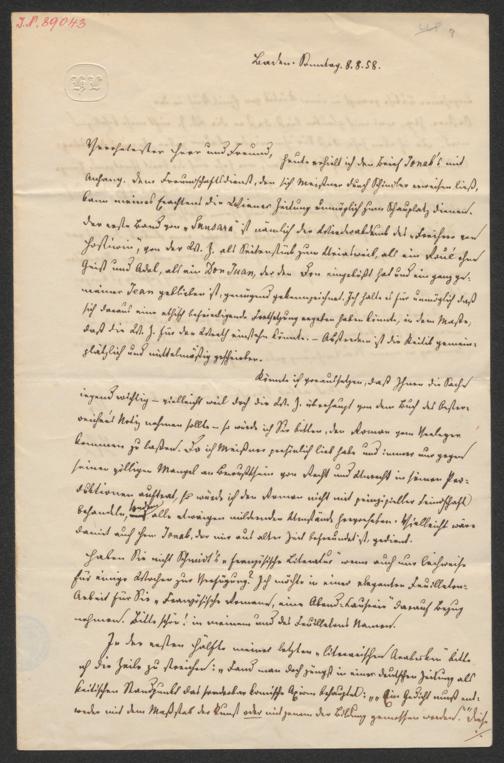 I.N. 89043
Baden. Sonntag. 8.8.58.
Verehrtester Herr und Freund,
Heute erhielt ich den Brief Jonak's mit
Anhang. Dem Freundschaftsdienst, den sich Meißner durch Schindler erweisen ließ,
kann meines Erachtens die Wiener Zeitung unmöglich zum Schauplatz dienen.
Der erste Band von „Sansara" ist nämlich der Wiederabdruck des „Freiherr von
Hostiwin", von der W. Z. als Seitenstück zum als ein Roué ohne
Geist und Adel, als ein Don Juan, der den Don eingebüßt hat und ein ganz ge-
meiner Jean geblieben ist, genügend gekennzeichnet. Ich halte es für unmöglich daß
sich daraus eine ethisch befriedigende Fortsetzung ergeben haben könnte, in dem Maße,
daß die W. Z. für den Werth einstehen könnte. – Außerdem ist die Kritik gemein-
plätzlich und mittelmäßig geschrieben.
Könnte ich voraussetzen, daß Ihnen die Sache
irgend wichtig – vielleicht weil doch die W. Z. überhaupt von dem Buch des Oester-
reichers Notiz nehmen sollte – so würde ich Sie bitten, den Roman vom Verleger
kommen zu lassen. Da ich Meißner persönlich lieb habe und immer nur gegen
seinen völligen Mangel an Bewußtsein von Recht und Unrecht in seinen Pro-
duktionen auftrat, so würde ich den Roman nicht mit prinzipieller Feindschaft
behandeln, sondern alle etwaigen mildernden Umstände hervorheben. Vielleicht wäre
damit auch Jonak, der mir aus alter Zeit befreundet ist, gedient.
Haben Sie nicht Schmidt's „französische Literatur" wenn auch nur leihweise
für einige Wochen zur Verfügung? Ich möchte in einer eleganten Feuilleton-
Arbeit für Sie „Französische Romane, eine Abend-Causerie" darauf Bezug
nehmen. Bitte schön! in meinem und des Feuilletons Namen.
In der ersten Hälfte meiner letzten „literarischen Arabesken" bitte
ich die Zeile zu streichen: „Fand man doch jüngst in einer deutschen Zeitung als
kritischen Standpunkt das sonderbar komische Axiom behauptet: „„Ein Gedicht muß ent-
weder mit dem Maßstab der Kunst oder mit jenem der Bildung gemessen werden."" Diese